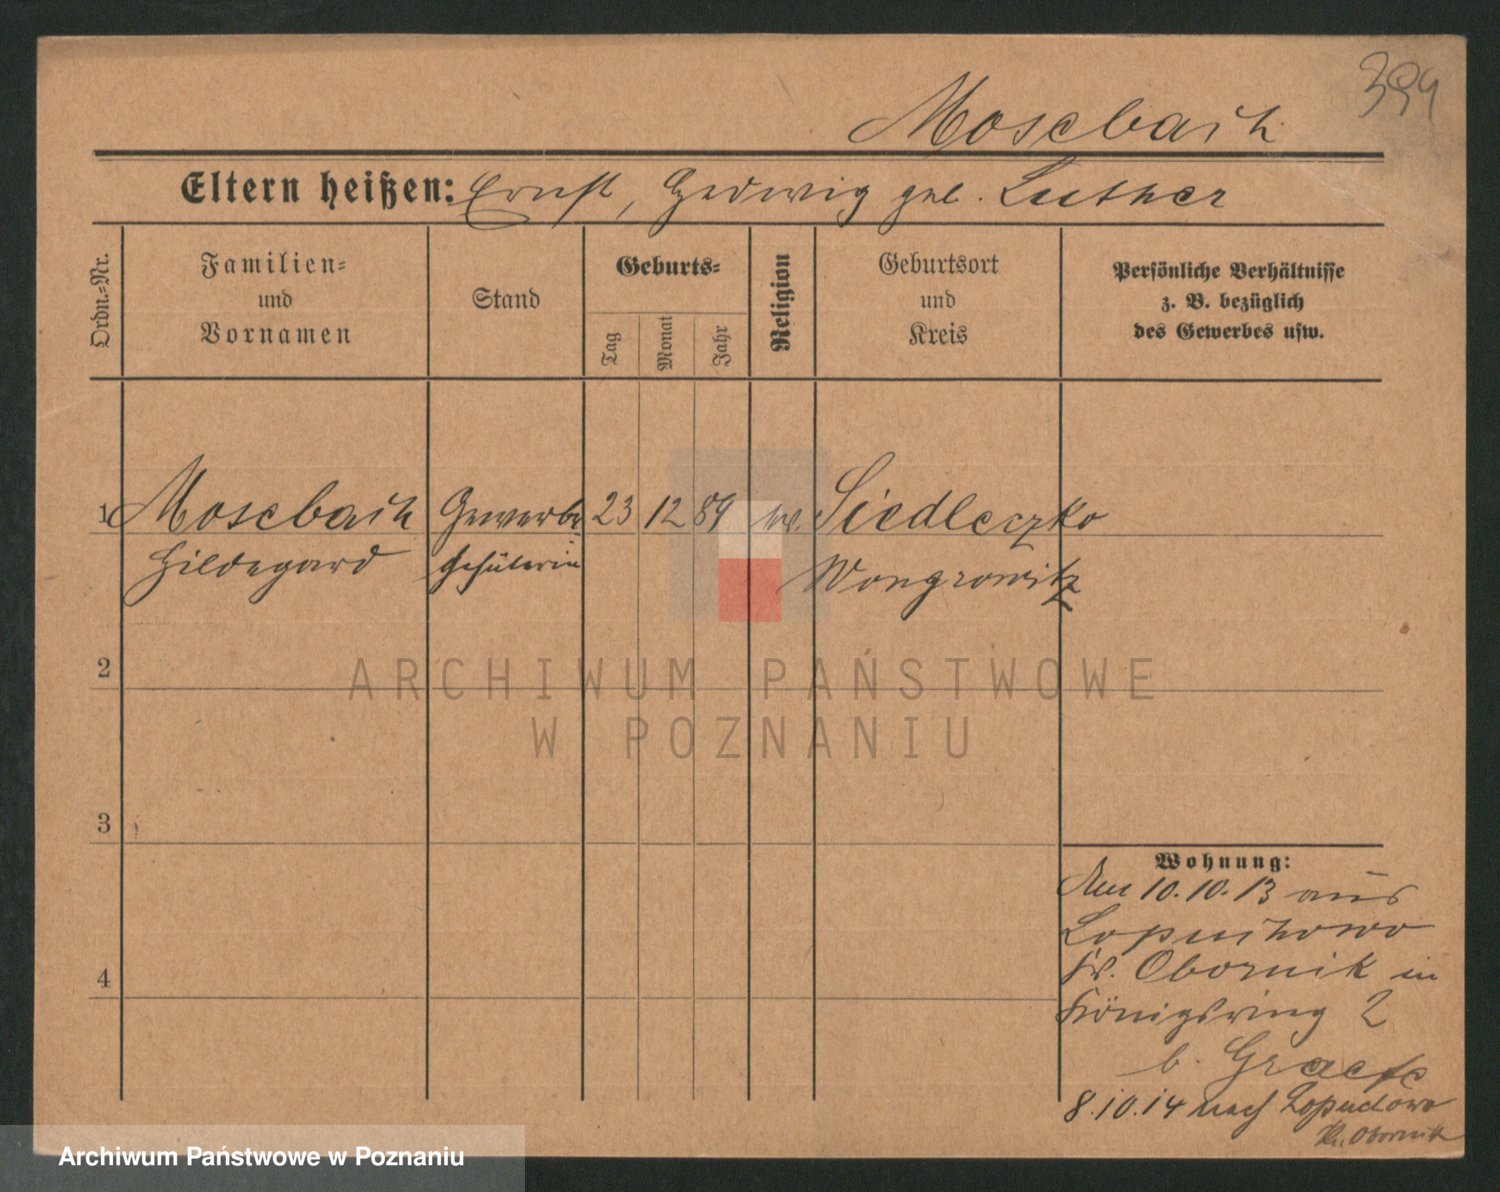 399
Mosebach
Eltern heißen: Ernst, Hedwig geb. Luther
Ordn.-Nr.
Familien-
und
Vornamen
Stand
Geburts-
Tag
Monat
Jahr
Religion
Geburtsort
und
Kreis
Persönliche Verhältnisse
z. B. bezüglich
des Gewerbes usw.
1 Mosebach Gewerbe 23 12 89 ev. Siedleczko
Hildegard schülerin Wongrowitz
2
ARCHIWUM PAŃSTWOWE
W POZNANIU
3
4
Wohnung:
Am 10.10.13 aus
Lopuchowo
Kr. Obornik in
Königsring 2
b. Graefe
8.10.14 nach Lopuchowo
Kr. Obornik
Archiwum Państwowe w Poznaniu